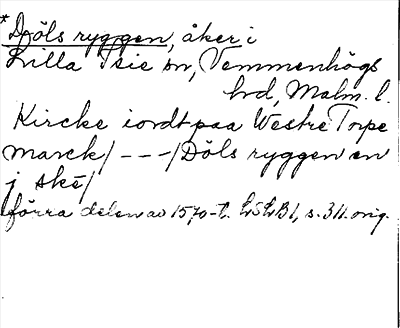 *Döls ryggen, åker i
Lilla Isie sn, Vemmenhögs
hd, Malm. l.
Kircke iordt paa Westre Torpe
marck/ - - - / Döls ryggen en
j skê/
förra delen av 1570-t. LSLB1, s. 311. orig.